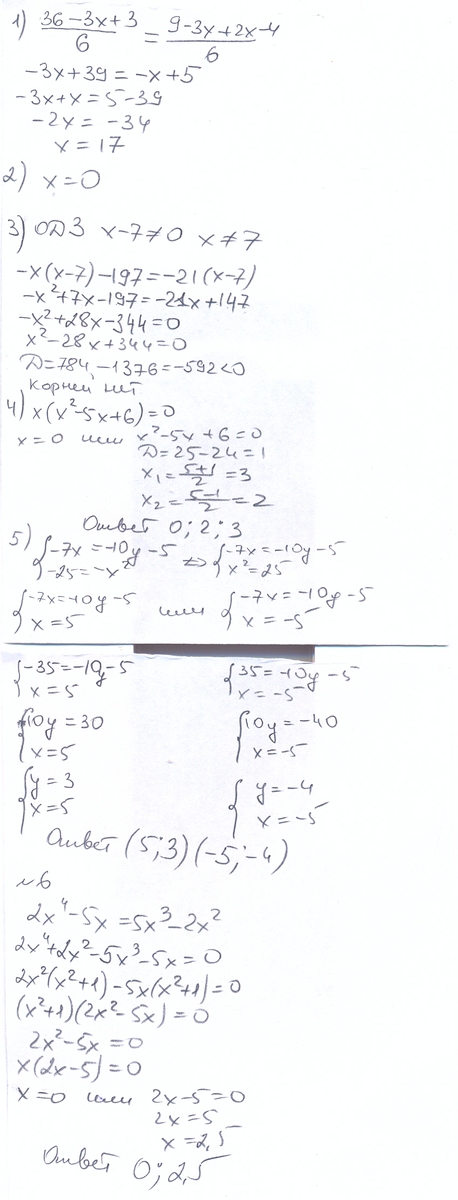 1) (36-3x+3)/6 = (9-3x+2x-4)/6
-3x+39=-x+5
-3x+x=5-39
-2x=-34
x=17
2) x=0
3) ОДЗ x-7≠0 x≠7
-x(x-7)-197=-21(x-7)
-x²+7x-197=-21x+147
-x²+28x-344=0
x²-28x+344=0
Д=784-1376=-592<0
Корней нет
4) x(x²-5x+6)=0
x=0 или x²-5x+6=0
Д=25-24=1
x₁=(5+1)/2=3
x₂=(5-1)/2=2
Ответ 0; 2; 3
5) {-7x=-10y-5 ⇔ {-7x=-10y-5
{-25=-x² {x²=25
{-7x=-10y-5 или {-7x=-10y-5
{x=5 {x=-5
{-35=-10y-5 {35=-10y-5
{x=5 {x=-5
{10y=30 {10y=-40
{x=5 {x=-5
{y=3 {y=-4
{x=5 {x=-5
Ответ (5;3) (-5;-4)
№6
2x⁴-5x=5x³-2x²
2x⁴+2x²-5x³-5x=0
2x²(x²+1)-5x(x²+1)=0
(x²+1)(2x²-5x)=0
2x²-5x=0
x(2x-5)=0
x=0 или 2x-5=0
2x=5
x=2,5
Ответ 0; 2,5